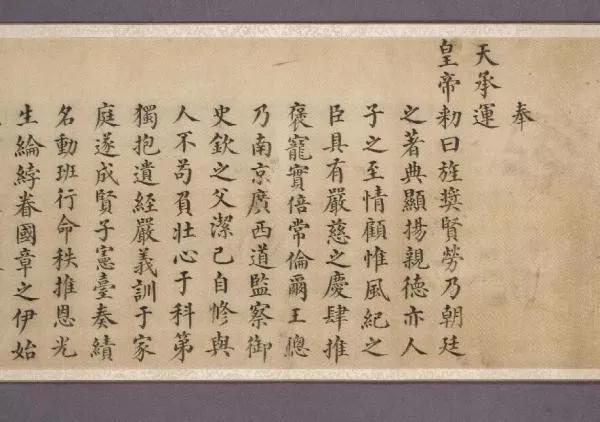 奉
天承運
皇帝勑曰旌奨賢勞乃朝廷
之著典顯揚親德亦人
子之至情顧惟風紀之
臣具有嚴慈之慶肆推
褒寵實倍常倫爾王聰
乃南京廣西道監察御
史欽之父潔己自修與
人不苟負壯心于科第
獨抱遺經嚴義訓于家
庭遂成賢子憲臺奏績
名動班行命秩推恩光
生綸綍眷國章之伊始